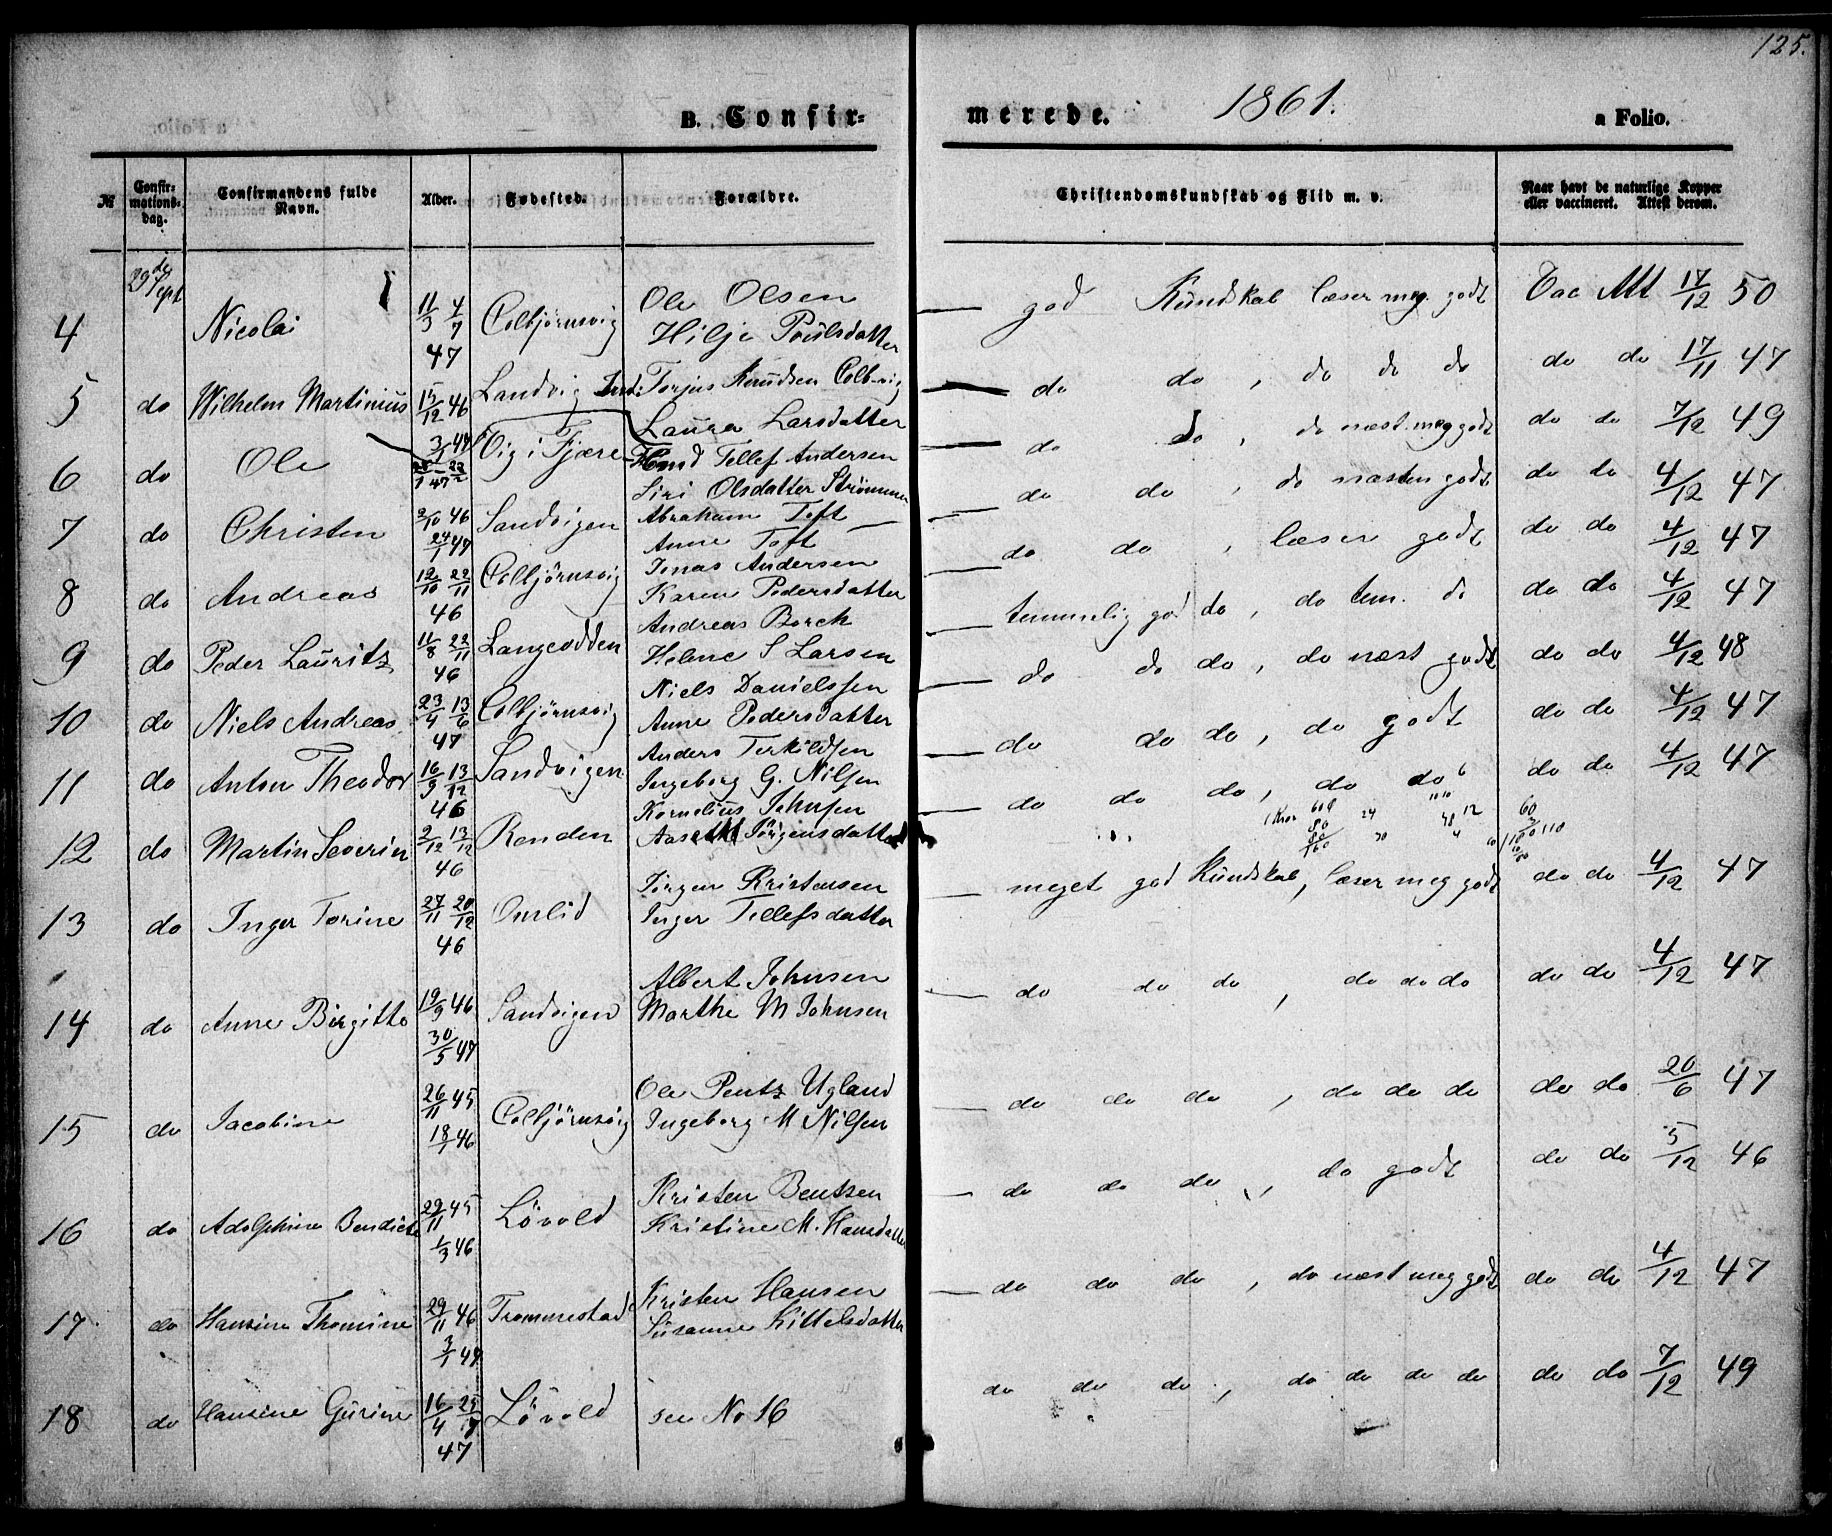 125.
B. Confir-
merede.
1861.
a Folio.
№
Confir-
mations-
dag.
Confirmandens fulde
Navn.
Alder.
Fødested.
Forældre.
Christendomskundskab og Flid m. v.
Naar havt de naturlige Kopper
eller vaccineret. Attest derom.
29de Sept
4 Nicolai 11/3 4/7 47 Colbjörnsvig
Ole Olsen
Hilje Poulsdatter
god Kundskab læser meg godt Vac Att 17/12 50
5 do Wilhelm Martinius 15/12 46 Landvig
Torjus Knudsen Colb-vig
Laura Larsdatter
do do, do do do do do 17/11 47
6 do Ole Vig i Fjære
Tellef Andersen
Siri Olsdatter Strömmen
do do, do næst meg godt do do 7/12 49
7 do Christen 2/10 46 24/1 47 Sandvigen
Abraham Toft
Anne Toft
do do, do næsten godt do do 4/12 47
8 do Andreas 12/10 22/11 46 Colbjörnsvig
Jonas Andersen
Karen Pedersdatter
do do, læser godt do do 4/12 47
9 do Peder Lauritz 11/8 22/11 46 Langeodden
Andreas Borck
Helene S Larsen
temmelig god do, do tem. do do do 4/12 47
10 do Niels Andreas 23/4 13/6 47 Colbjörnsvig
Niels Danielssen
Anne Pedersdatter
do do do, do næst godt do do 4/12 48
11 do Anton Theodor 16/9 13/12 46 Sandvigen
Anders Terkildsen
Ingeborg G. Nilsen
do do do, do godt do do 4/12 47
12 do Martin Severin 2/12 13/12 46 Renden
Kornelius Johnsen
Aaseth Jörgensdatter
do do do, do do do do 4/12 47
13 do Inger Torine 27/11 20/12 46 Omlid
Jörgen Kristensen
Inger Tellefsdatter
meget god Kundskab, læser meg godt do do 4/12 47
14 do Anne Birgitte 19/9 46 30/5 47 Sandvigen
Albert Johnsen
Marthe M Johnsen
do do do, do do do do do 4/12 47
15 do Jacobine 26/11 45 18/1 46 Colbjörnsvig
Ole Pentz Ugland
Ingeborg M Nilsen
do do do, do do do do do 20/6 47
16 do Adolphine Bendicte 29/11 45 1/3 46 Lövold
Kristen Bentsen
Kristine M. Hansdatter
do do do, do godt do do 5/12 46
17 do Hansine Thomine 29/11 46 3/1 47 Trommestad
Kristen Hansen
Susanne Kittelsdatter
do do do, do næst meg godt do do 4/12 47
18 do Hansine Gurine 16/4 47 Lövold
see No 16
do do do, do do do do do do 7/12 49